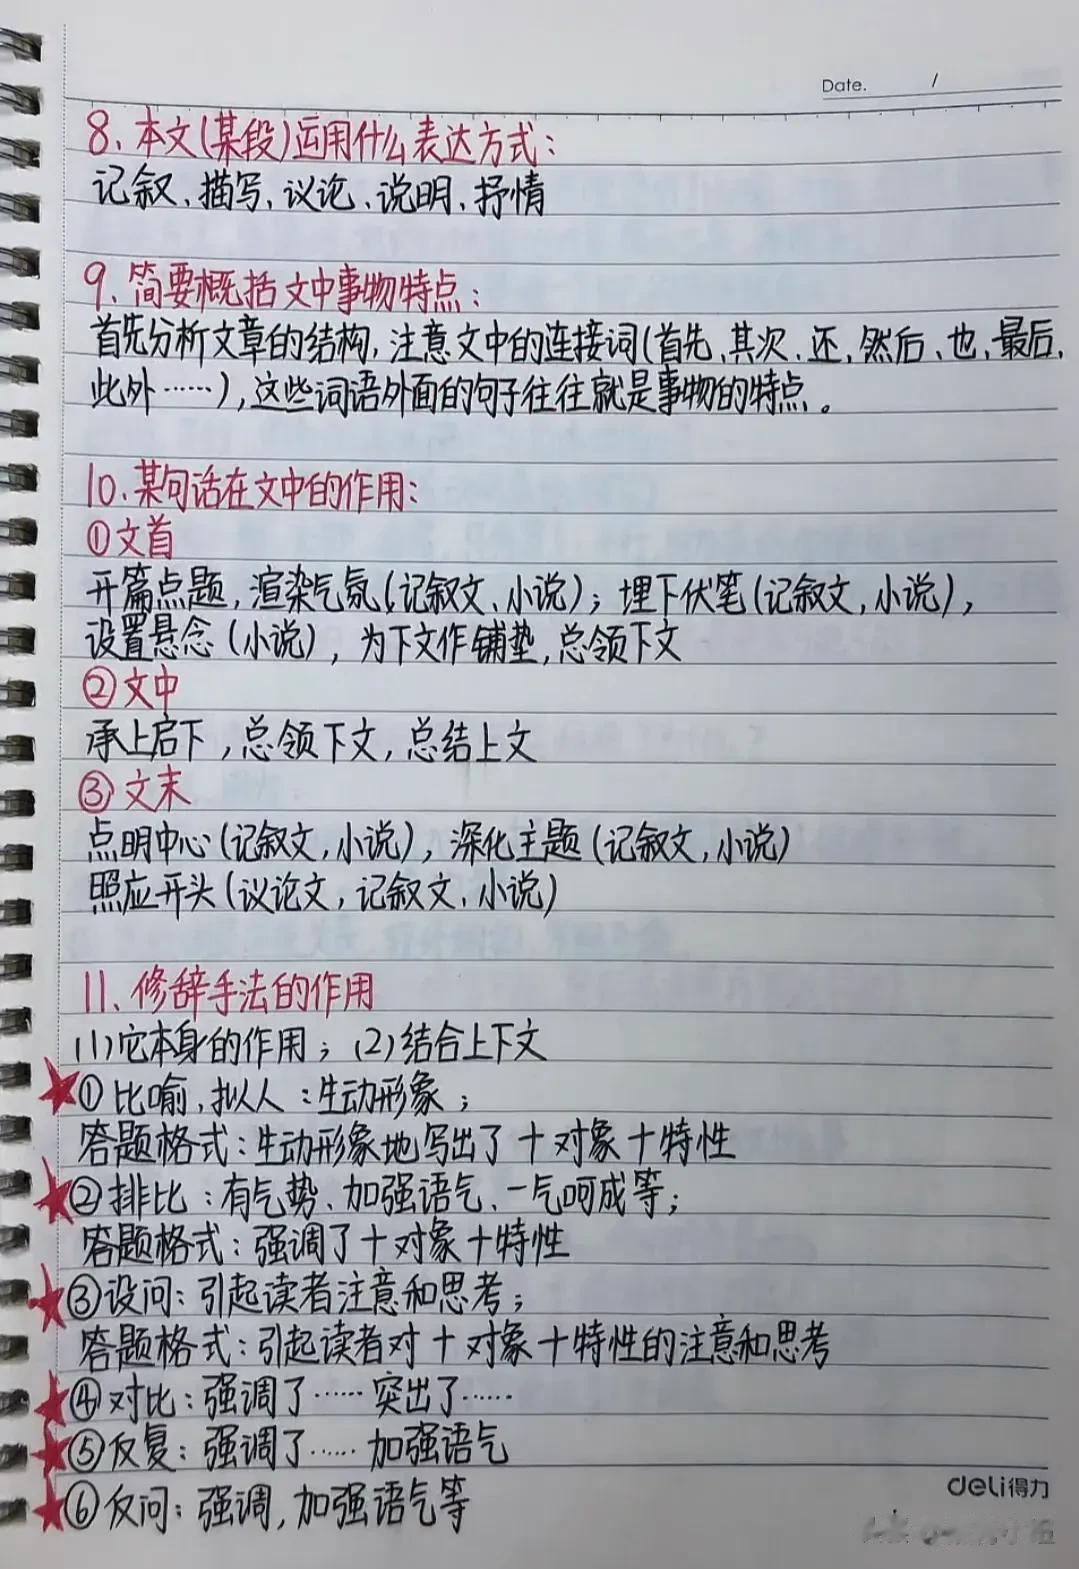 Date. /
8、本文(某段)运用什么表达方式:
记叙、描写、议论、说明、抒情
9、简要概括文中事物特点:
首先分析文章的结构,注意文中的连接词(首先、其次、还、然后、也、最后、
此外……),这些词语外面的句子往往就是事物的特点。
10、某句话在文中的作用:
①文首
开篇点题,渲染气氛(记叙文、小说);埋下伏笔(记叙文,小说),
设置悬念(小说),为下文作铺垫,总领下文
②文中
承上启下,总领下文,总结上文
③文末
点明中心(记叙文,小说),深化主题(记叙文,小说)
照应开头(议论文,记叙文、小说)
11、修辞手法的作用
(1)它本身的作用;(2)结合上下文
★①比喻、拟人:生动形象;
答题格式:生动形象地写出了+对象+特性
★②排比:有气势、加强语气、一气呵成等;
答题格式:强调了+对象+特性
★③设问:引起读者注意和思考;
答题格式:引起读者对+对象+特性的注意和思考
★④对比:强调了……突出了……
★⑤反复:强调了……加强语气
★⑥反问:强调,加强语气等
deli得力